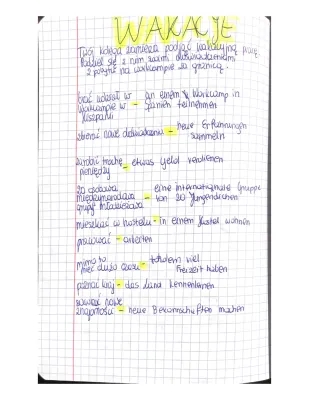 WAKACJE
Twój kolega zamierza podjąć wakacyjną pracę.
Podziel się z nim swoimi doświadczeniami
z pobytu na workcampie za granicą.
brać udział w - an einem Workcamp in
workcampie w - Spanien teilnehmen
Hiszpanii
zbierać nowe doświadczenia - neue Erfahrungen
sammeln
zarobić trochę - etwas Geld verdienen
pieniędzy
20 osobowa eine internationale Gruppe
międzynarodowa - von 20 Jungendlichen
grupa młodzieżowa
mieszkać w hostelu - in einem Hostel wohnen
pracować - arbeiten
mimo to - trotzdem viel
mieć dużo czasu Freizeit haben
poznać kraj - das Land kennenlernen
zawrzeć nowe
znajomości - neue Bekanntschaften machen